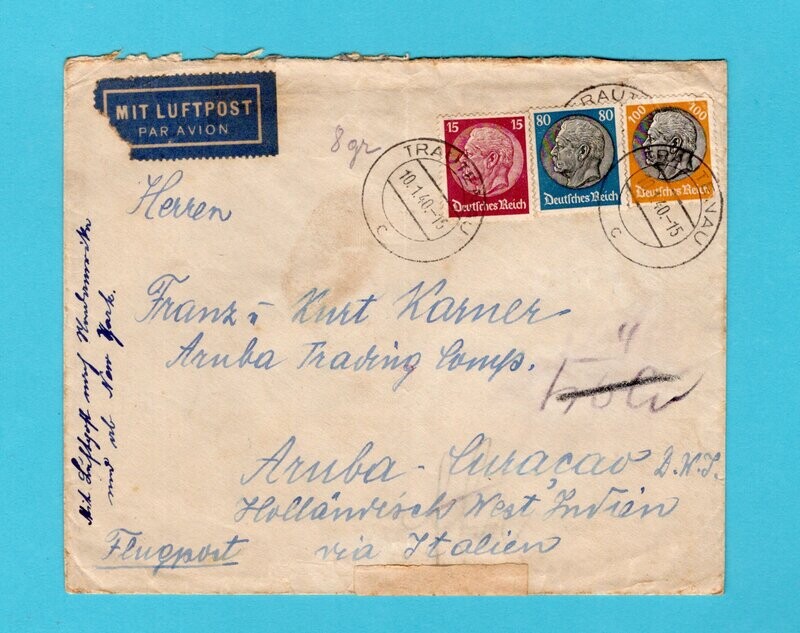 MIT LUFTPOST
PAR AVION
8 gr
15 15
Deutsches Reich
80 80
Deutsches Reich
100 100
Deutsches Reich
TRAUTENAU
10.1.40.-15
c
TRAUTENAU
40.-15
c
Herren
Franz u Kurt Karner
Aruba Trading Comp.
Köln
Aruba - Curaçao D.W.I.
Holländisch West Indien
Flugpost via Italien
Mit Luftpost nach Nordamerika
und ab New York.